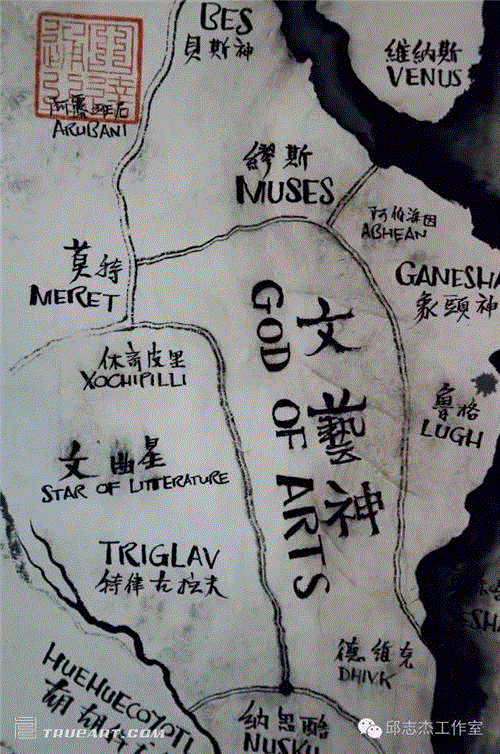 BES
貝斯神
維納斯
VENUS
ARUBANI
繆斯
MUSES
ABHEAN
莫特
MERET
GANESHA
象頭神
文藝神
GOD OF ARTS
休奇皮里
XOCHIPILLI
魯格
LUGH
文曲星
STAR OF LITTERATURE
TRIGLAV
特律古拉夫
德維克
DHIVK
HUEHUECOYOTL
NUSKU
TRUEART.COM
邱志杰工作室